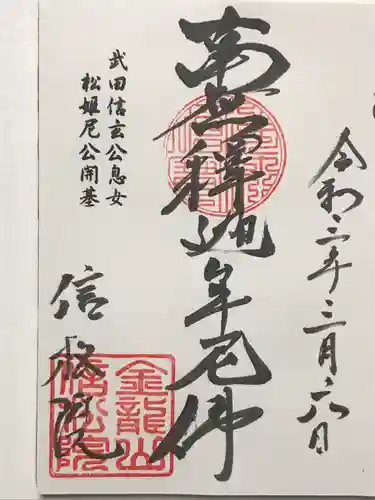 令和三年三月六日
南無釋迦牟尼佛
武田信玄公息女
松姫尼公開基
信松院
金龍山
信松院